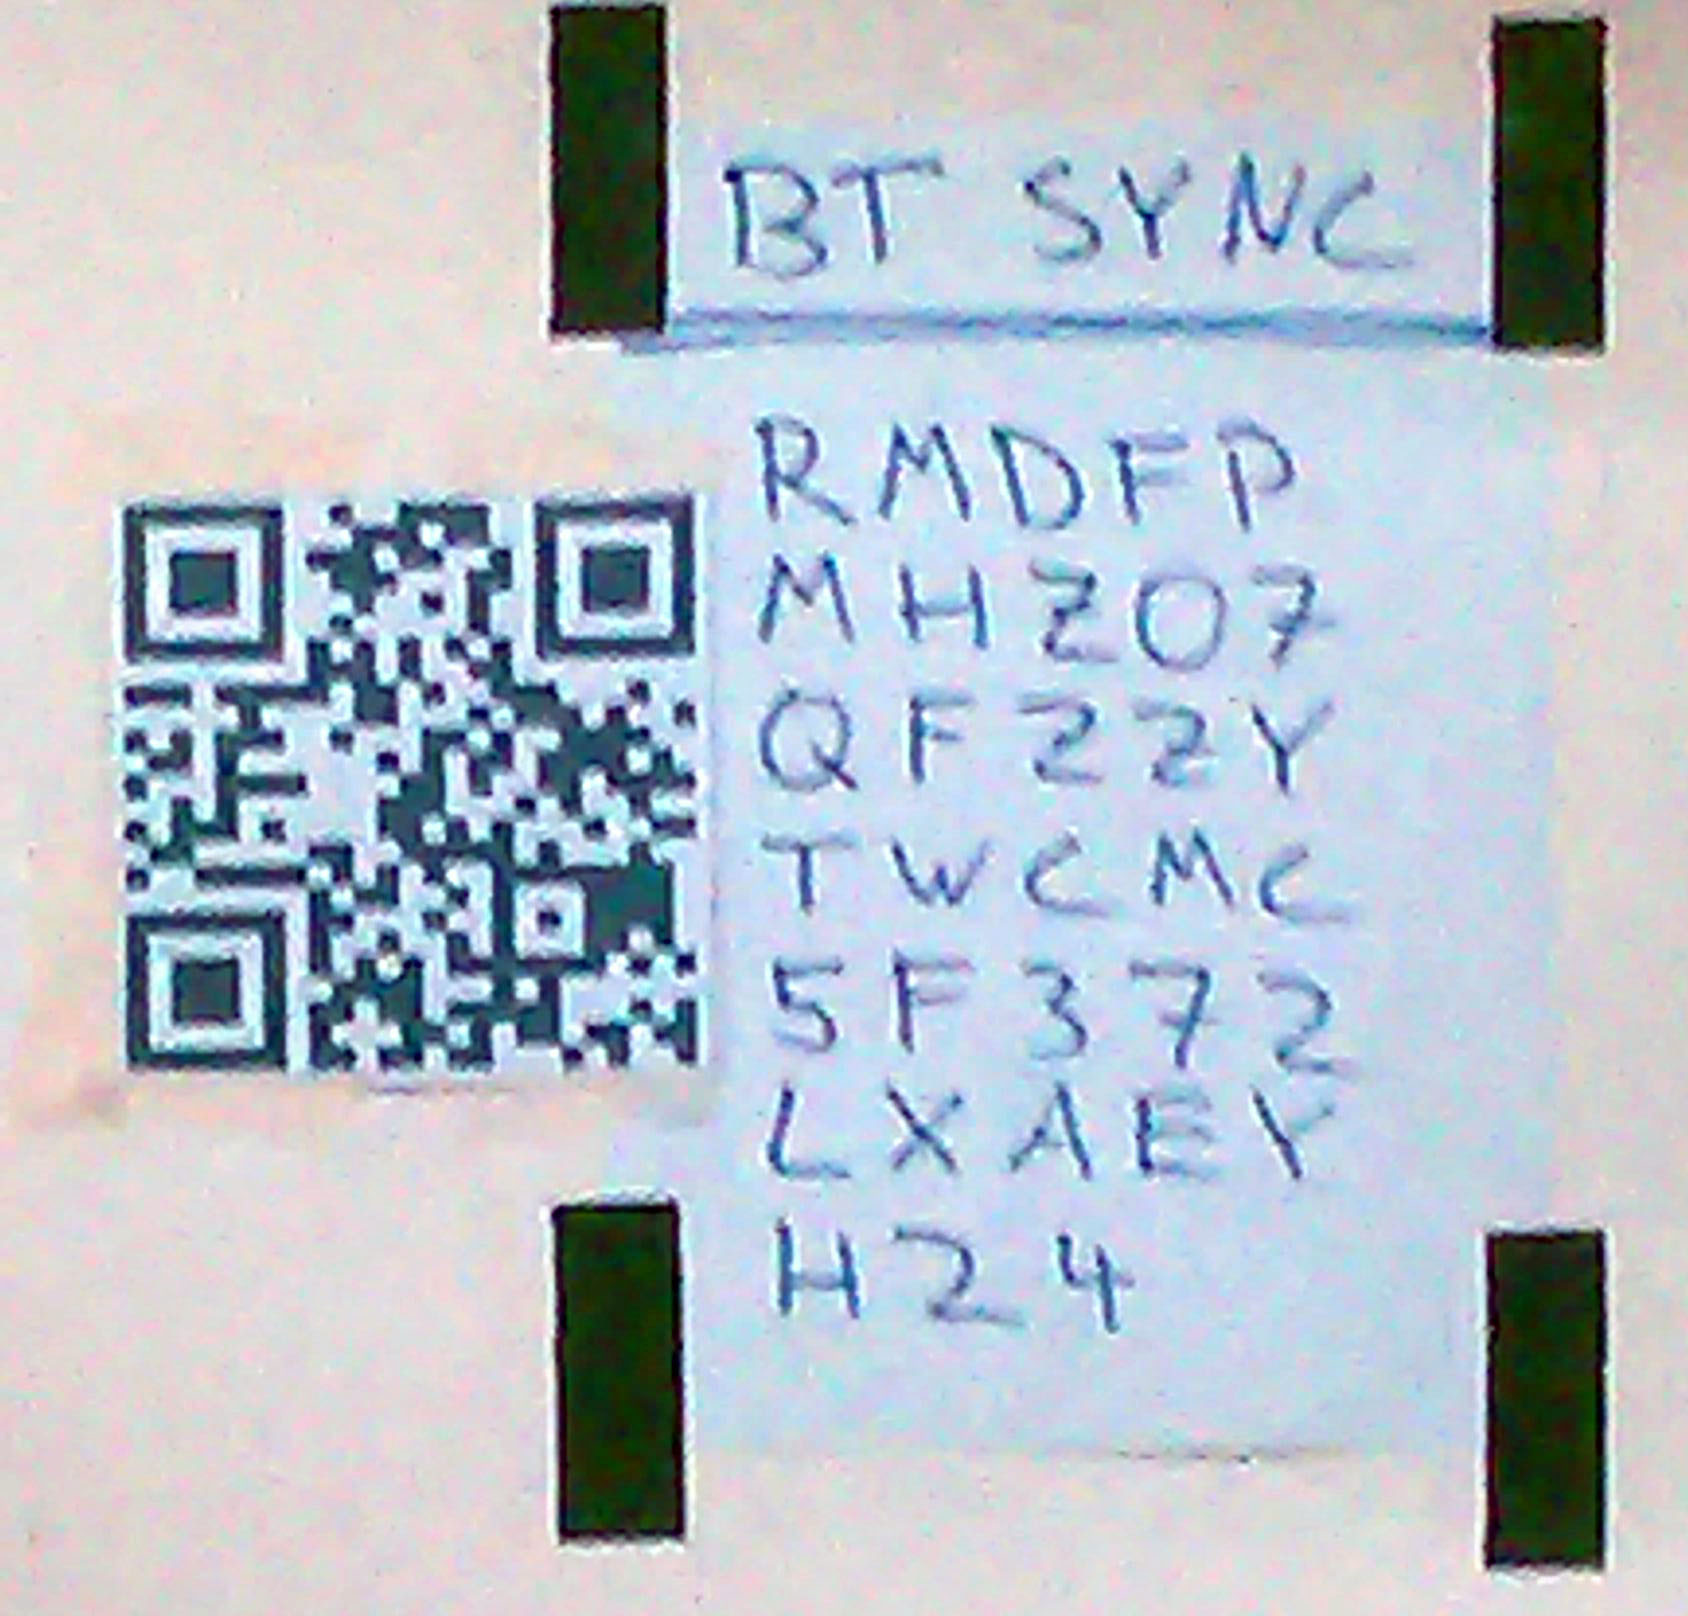 BT SYNC
RMDFP
MHZO7
QF22Y
TWCMC
5F372
LXAEY
H24